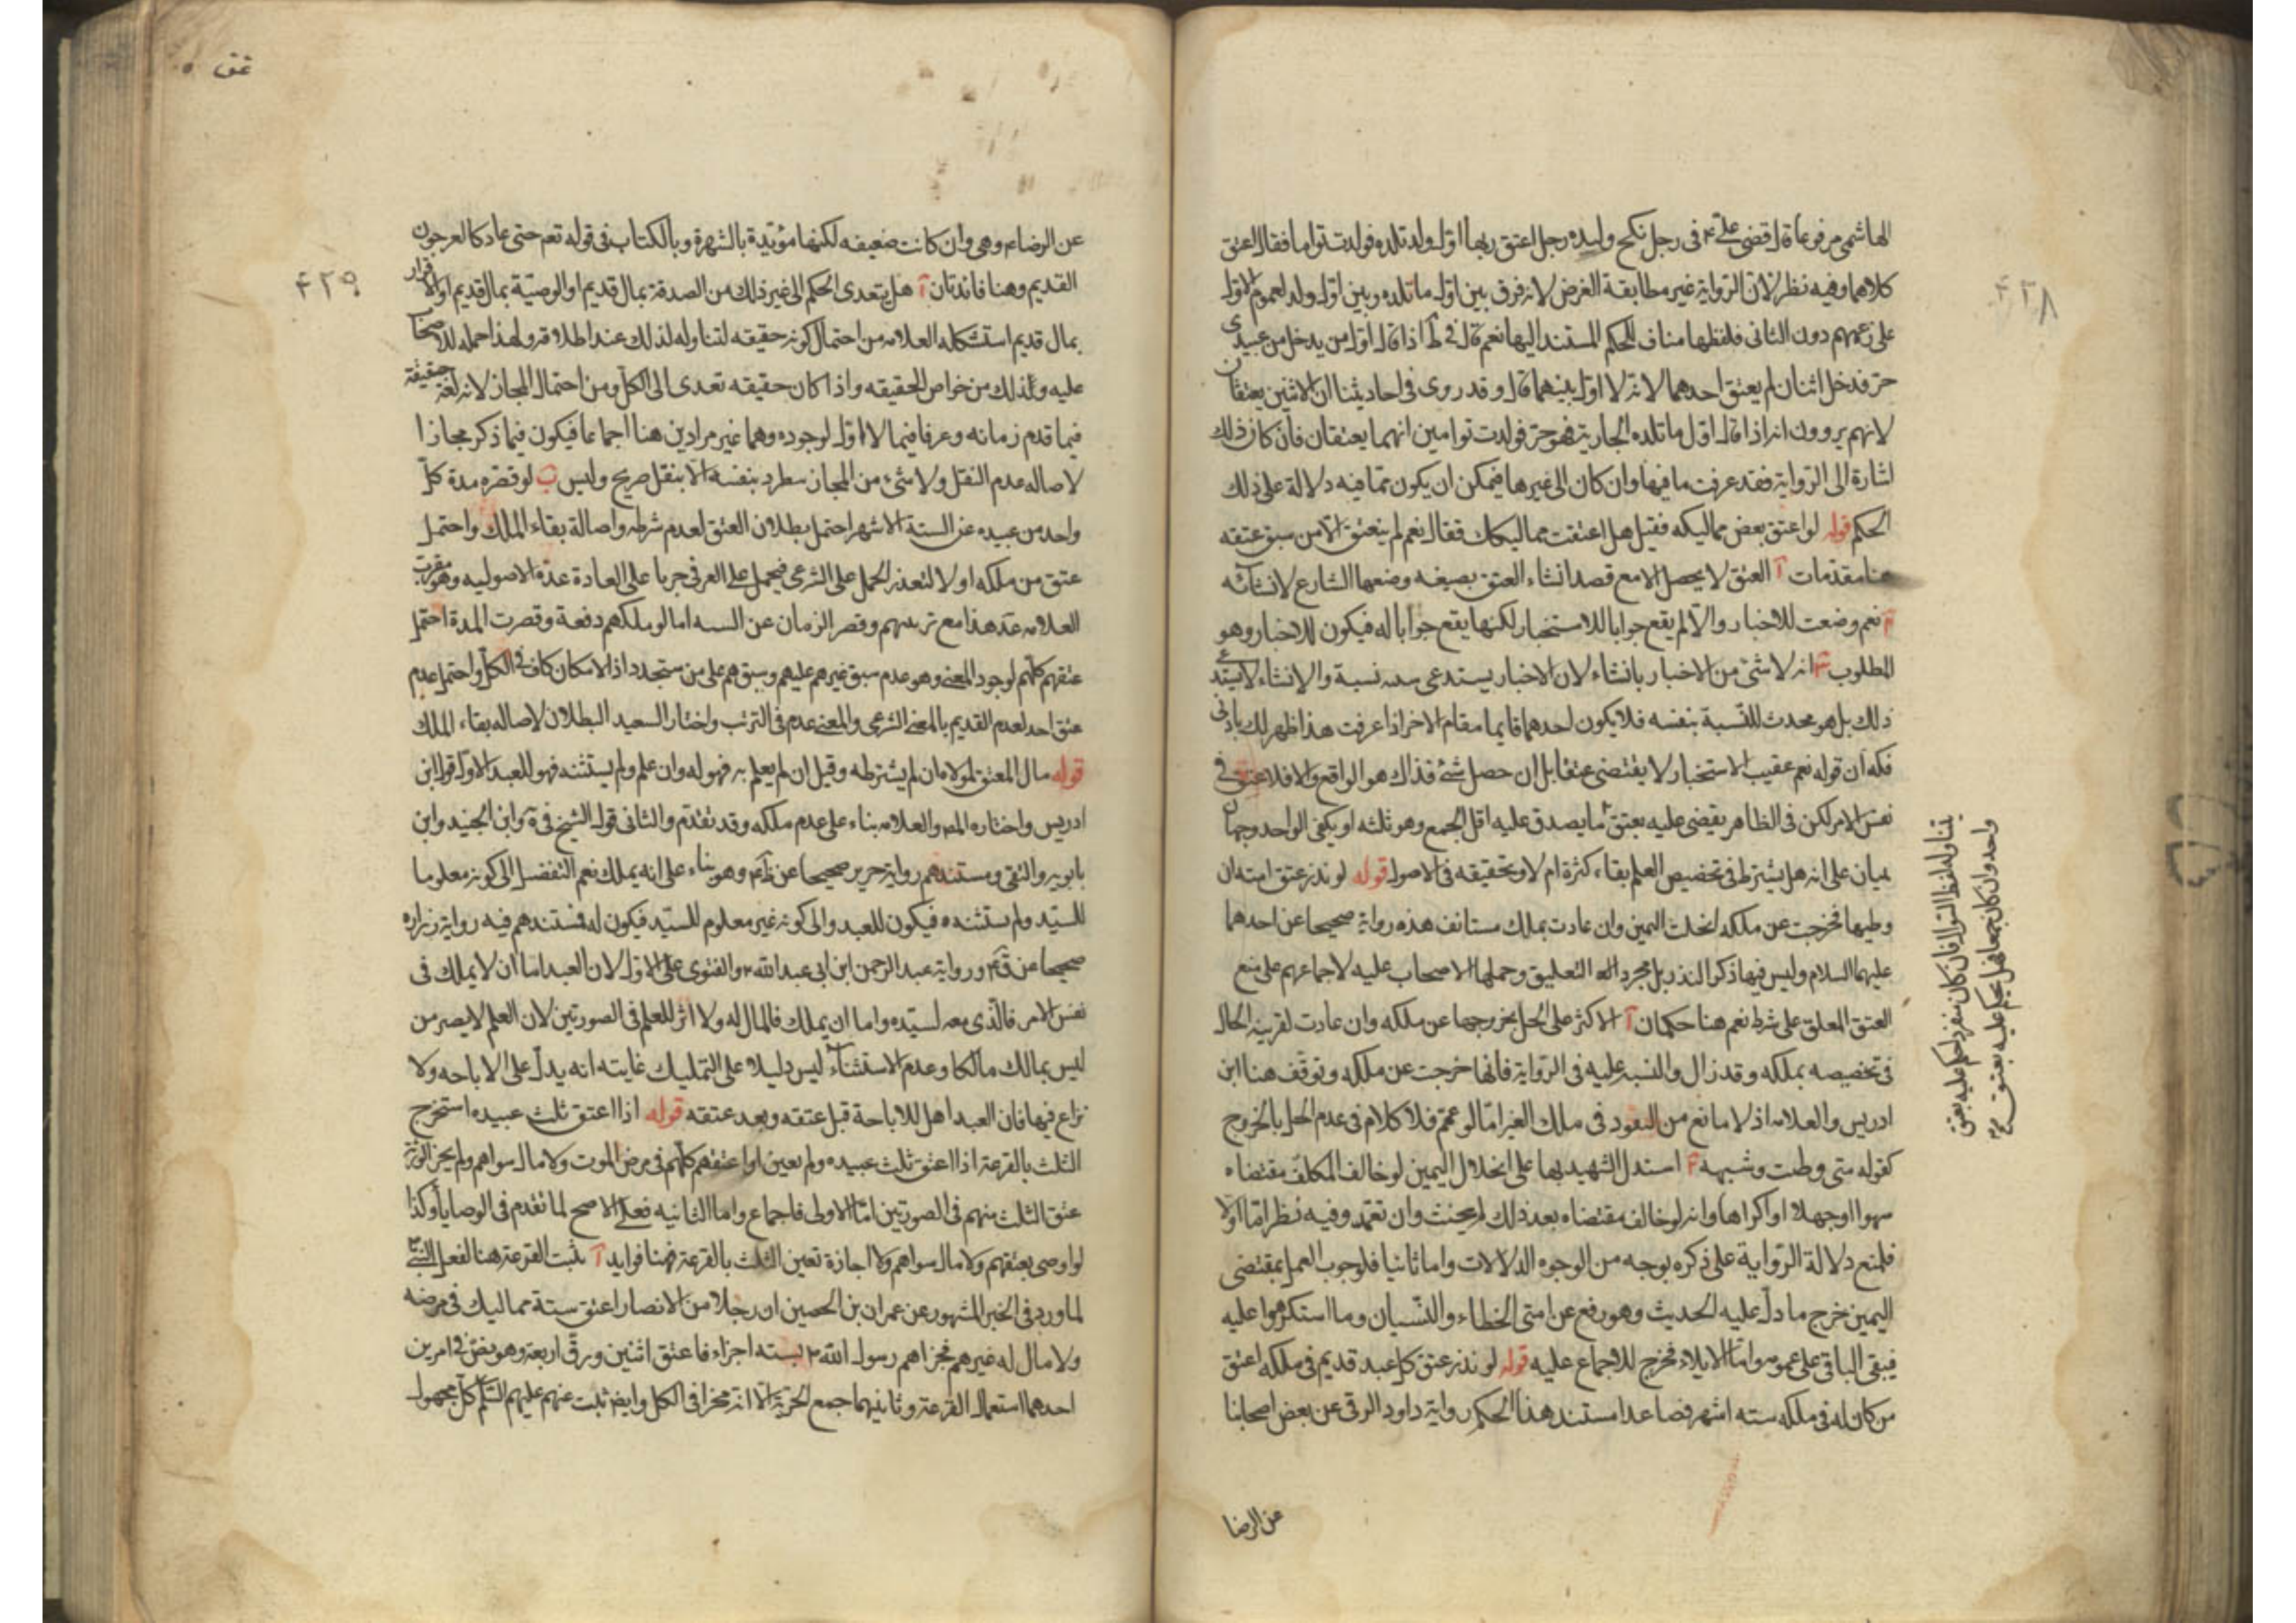 ۴۲۸
الهاشمی مرفوعا قال قضی علی ع فی رجل نکح ولیده رجل اعتق ربها اول ولد تلده فولدت توأما فقال اعتق
کلاهما وفیه نظر لان الروایة غیر مطابقة الغرض لانه فرق بین اول ما تلده وبین اول ولد لعموم الاول
علی زعمهم دون الثانی فلفظها مناف للحکم المستند الیها نعم قال فی ط اذا قال اول من یدخل من عبیدی
حر فدخل اثنان لم یعتق احدهما لانه لا اول بینهما قال وقد روی فی احادیثنا ان الاثنین یعتقان
لانهم یروون انه اذا قال اول ما تلده الجاریة فهو حر فولدت توأمین انهما یعتقان فان کان ذلك
اشارة الی الروایة فقد عرفت ما فیها وان کان الی غیرها فیمکن ان یکون مما فیه دلالة علی ذلك
الحکم قوله لو اعتق بعض ممالیکه فقیل هل اعتقت ممالیکك فقال نعم لم ینعتق الا من سبق عتقه
هنا مقدمات آ العتق لا یحصل الا مع قصد انشاء العتق بصیغه وضعها الشارع لانشائه
نعم وضعت للاخبار والا لم یقع جوابا للاستخبار لکنها یقع جوابا له فیکون للاخبار وهو
المطلوب انه لا شئ من الاخبار بانشاء لان الاخبار یستدعی سبق نسبة والانشاء لا یستدعی
ذلك بل هو محدث للنسبة بنفسه فلا یکون احدهما قایما مقام الاخر اذا عرفت هذا ظهر لك بادنی
فکه ان قوله نعم عقیب الاستخبار لا یقتضی عتقا بل ان حصل شئ فذاك هو الواقع والا فلا عتق فی
نفس الامر لکن فی الظاهر یقضی علیه بعتق ما یصدق علیه اقل الجمع وهو ثلثه او یکفی الواحد وجهان
مبنیان علی انه هل یشترط فی تخصیص العلم بقاء کثرة ام لا وتحقیقه فی الاصول قوله لو نذر عتق امته ان
وطیها فخرجت عن ملکه انحلت الیمین وان عادت بملك مستانف هذه روایة صحیحا عن احدهما
علیهما السلام ولیس فیها ذکر النذر بل مجرد التعلیق وحملها الاصحاب علیه لاجماعهم علی منع
العتق المعلق علی شرط نعم هنا حکمان آ الاکثر علی الحل بخروجها عن ملکه وان عادت لقرینة الحال
فی تخصیصه بملکه وقد زال والتنبیه علیه فی الروایة فانها خرجت عن ملکه وتوقف هنا ابن
ادریس والعلامه اذ لا مانع من النفوذ فی ملك الغیر اما لو عمم فلا کلام فی عدم الحل بالخروج
کقوله متی وطئت وشبهه استدل الشهید بها علی انحلال الیمین لو خالف المکلف مقتضاه
سهوا او جهلا او اکراها وانه لو خالف مقتضاه بعد ذلك لم یحنث وان تعمد وفیه نظر اما اولا
فلمنع دلالة الروایة علی ذکره بوجه من الوجوه الدلالات واما ثانیا فلوجوب العمل بمقتضی
الیمین خرج ما دل علیه الحدیث وهو رفع عن امتی الخطاء والنسیان وما استکرهوا علیه
فیبقی الباقی علی عمومه واما الایلاء فخرج للاجماع علیه قوله لو نذر عتق کل عبد قدیم فی ملکه اعتق
من کان له فی ملکه سته اشهر فصاعدا مستند هذا الحکم روایة داود الرقی عن بعض اصحابنا
عن الرضا
یتناوله لفظ السؤال فان کان منفرد احکم علیه بعتق
واحد وان کان جمعا فهل یحکم علیه بعتق
عتق
۴۲۹
عن الرضا ع وهی وان کانت ضعیفه لکنها مؤیدة بالشهرة وبالکتاب فی قوله تعم حتی عاد کالعرجون
القدیم وهنا فائدتان آ هل یتعدی الحکم الی غیر ذلك من الصدقة بمال قدیم او الوصیة بمال قدیم او الاقرار
بمال قدیم استشکله العلامه من احتمال کونه حقیقه لتناوله لذلك عند اطلاقه ولهذا حمله الاصحاب
علیه وذلك من خواص الحقیقه واذا کان حقیقه تعدی الی الکل ومن احتمال المجاز لانه لغة حقیقة
فیما قدم زمانه وعرفا فیما لا اول لوجوده وهما غیر مرادین هنا اجماعا فیکون فیما ذکر مجازا
لاصاله عدم النقل ولا شئ من المجاز بمطرد بنفسه الا بنقل صریح ولیس ب لو قصره مدة کل
واحد من عبیده عن الستة الاشهر احتمل بطلان العتق لعدم شرطه واصالة بقاء الملك واحتمل
عتق من ملکه اولا لتعذر الحمل علی الشرعی فیحمل علی العرفی جریا علی العادة الاصولیه وهو مقرب
العلامه هذا مع ترتیبهم وقصر الزمان عن السته اما لو ملکهم دفعة وقصرت المدة احتمل
عتقهم کلهم لوجود المعنی وهو عدم سبق غیرهم علیهم وسبقهم علی من ستجدد اذ الامکان کاف فی الکل واحتمل عدم
عتق احد لعدم القدیم بالمعنی الشرعی والمعنی عدم فی الترتب واختار السعید البطلان لاصاله بقاء الملك
قوله مال المعتق لمولاه ان لم یشترطه وقیل ان لم یعلم به فهو له وان علم ولم یستثنه فهو للعبد الاول قول ابن
ادریس واختاره المص والعلامه بناء علی عدم ملکه وقد تقدم والثانی قول الشیخ فی وابن الجنید وابن
بابویه والتقی ومستندهم روایة حریز صحیحا عن وهو بناء علی انه یملك نعم التفصیل الی کونه معلوما
للسید ولم یستثنه فیکون للعبد والی کونه غیر معلوم للسید فیکون له فمستندهم فیه روایة زراره
صحیحا عن وروایة عبد الرحمن ابن ابی عبد الله والفتوی علی الاول لان العبد اما ان لا یملك فی
نفس الامر فالذی معه لسیده واما ان یملك فالمال له ولا اثر للعلم فی الصورتین لان العلم لا یصیر من
لیس بمالك مالکا وعدم الاستثناء لیس دلیلا علی التملیك غایته انه یدل علی الاباحه ولا
نزاع فیها فان العبد اهل للاباحة قبل عتقه وبعد عتقه قوله اذا اعتق ثلث عبیده استخرج
الثلث بالقرعة اذا اعتق ثلث عبیده ولم یعین او اعتقهم کلهم فی مرض الموت ولا مال سواهم ولم یجز الورثة
عتق الثلث منهم فی الصورتین اما الاولی فاجماع واما الثانیه فعلی الاصح لما تقدم فی الوصایا وکذا
لو اوصی بعتقهم ولا مال سواهم ولا اجازة تعین الثلث بالقرعة فهنا فواید آ ثبت القرعة هنا لفعل النبی
لما ورد فی الخبر المشهور عن عمران بن الحصین ان رجلا من الانصار اعتق ستة ممالیك فی مرضه
ولا مال له غیرهم فجزاهم رسول الله بسته اجزاء فاعتق اثنین ورق اربعة وهو نص فی امرین
احدهما استعمال القرعة وثانیهما جمع الحریة الا انه مجزا فی الکل وایض ثبت عنهم علیهم السلم کل مجهول